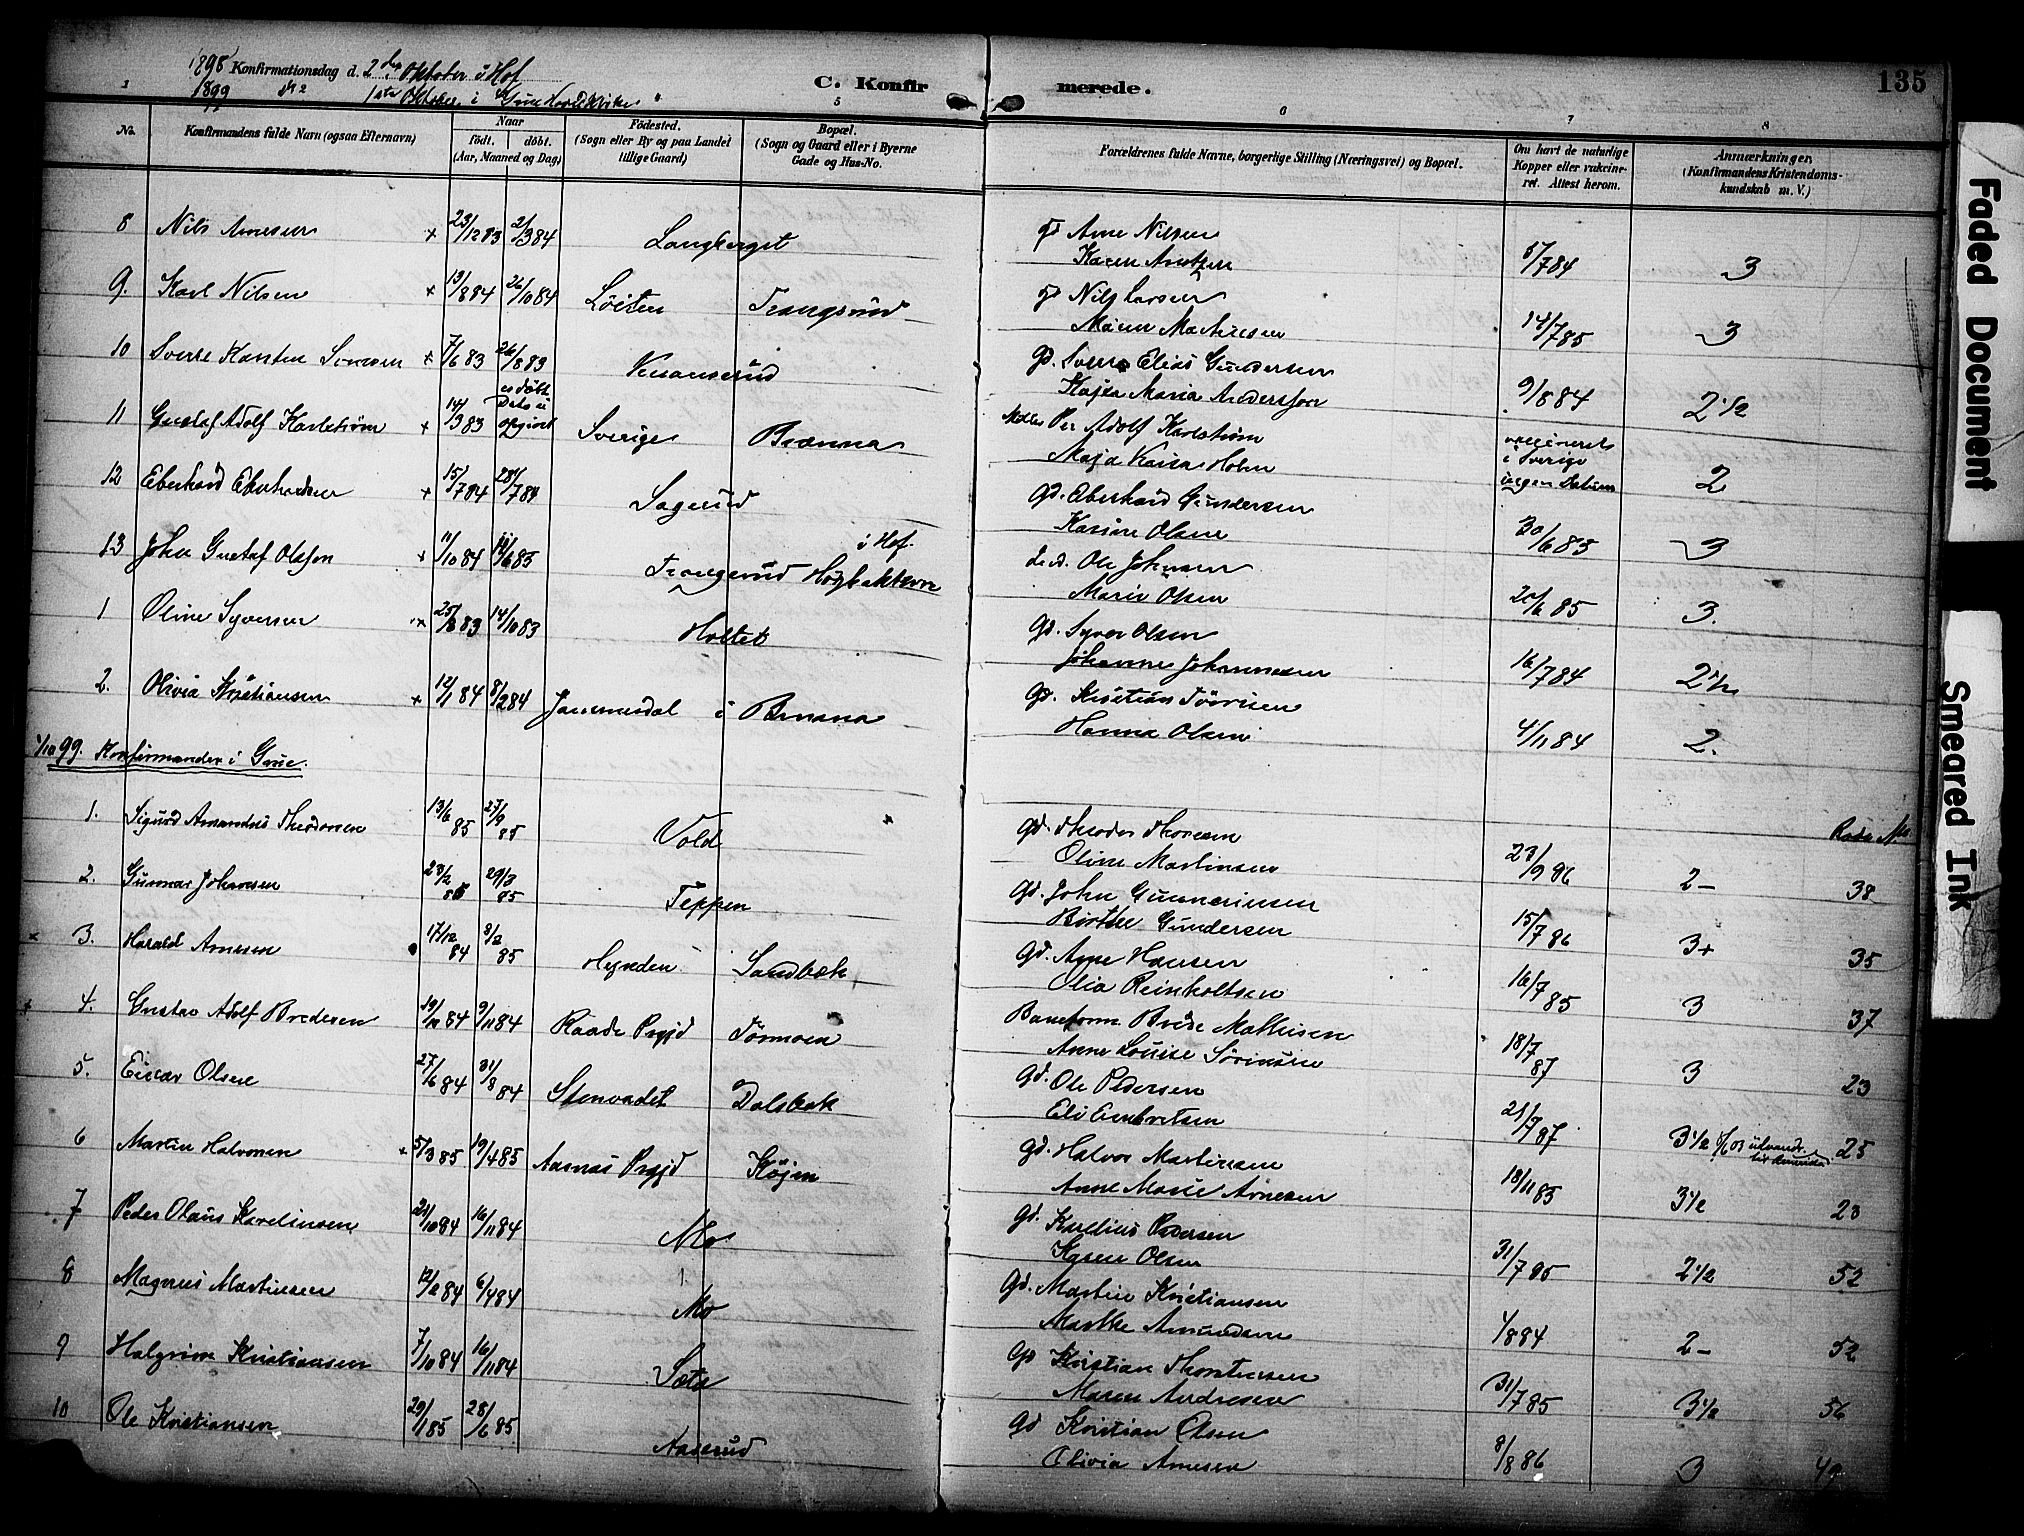 1898 Konfirmationsdag d. 2den Oktober i Hof
1899 1ste Oktober i Grue
C. Konfirmerede.
135
No.
Konfirmandens fulde Navn (ogsaa Efternavn)
Naar
født. døbt.
(Aar, Maaned og Dag)
Fødested.
(Sogn eller By og paa Landet
tillige Gaard)
5
Bopæl.
(Sogn og Gaard eller i Byerne
Gade og Hus-No.
6
Forældrenes fulde Navne, borgerlige Stilling (Næringsvei) og Bopæl.
7
Om havt de naturlige
Kopper eller vakcine-
ret. Attest herom.
8
Anmærkninger
(Konfirmandens Kristendoms-
kundskab m. V.)
8 Nils Arnesen x 23/12 83 2/3 84 Langberget gd Arne Nilsen
Karen 5/7 84 3
9. Karl Nilsen x 13/8 84 26/10 84 Løiten Trangsrud gd Nils Larsen
Maren Mathisen 14/7 85 3
10 Sverre Karsten x 7/6 83 26/8 83 gd. Sverre Elias Gundersen
Kajsa Maria Andersson 9/8 84 2 1/2
11 Gustaf Adolf Karlstrøm x 14/3 83 Sverige Brænna Per Adolf Karlstrøm
Maja Kaisa i Sverige
ingen Datum 2
12 Eberhard Eberhardsen x 15/7 84 28/7 84 Sagerud gd. Eberhard Gundersen
Karine Olsen 30/6 85 3
13 John Gustaf Olsson x 11/10 84 Trangsrud i Hof. Ole Johnsen
Marie Olsen 20/6 85 3.
1 Oline Syversen x 25/8 83 14/10 83 Holtet gd. Syver Olsen
Johanne Johannesen 16/7 84 2 1/2
2. Olivia Kristiansen x 12/1 84 8/2 84 i Brænna gd. Kristian
Hanna Olsen 4/11 84 2.
1/10 99. Konfirmander i Grue.
1. Sigurd Amandus Theodorsen 13/6 85 27/9 85 Vold gd. Theodor Thoresen
Oline Martinsen 23/9 86 2- 38
2. Gunnar Johnsen 23/2 85 29/3 85 Teppen gd. John Gunneriusen
Birthe Gundersen 15/7 86 3+ 35
x 3. Harald Arnesen 17/12 84 8/2 85 Hynden Sandbæk gd. Arne Hansen
Olia Reinholtsen 16/7 85 3 37
x 4. Gustav Adolf Bredesen 19/10 84 9/11 84 Raade Prgjd Tørmoen Baneform. Brede Mathisen
Anne Louise Sørensen 18/7 87 3 23
5. Einar Olsen 27/6 84 31/8 84 Stenvadet Dalsbæk gd. Ole Pedersen
Eli Embretsen 21/7 87 3 1/2 25
6 Martin Halvorsen x 5/3 85 19/4 85 Aasnes Prgjd Køjen gd. Halvor Martinsen
Anne Marie Arnesen 18/11 85 3 1/2 23
7 Peder Olaus Kareliusen 21/10 84 16/11 84 Mo gd. Karelius Pedersen
Karen Olsen 31/7 85 2 1/2 52
8 Magnus Martinsen 12/2 84 6/4 84 Mo gd. Martin Kristiansen
Marthe Amundsen 1/8 84 2- 52
9 Halgrim Kristiansen 7/10 84 16/11 84 Sæta gd Kristian Thorstensen
Maren Andresen 31/7 85 3 1/2 56
10 Ole Kristiansen 29/1 85 28/6 85 Aaserud gd Kristian Olsen
Olivia Arnesen 8/8 86 3 49
Faded Document
Smeared Ink